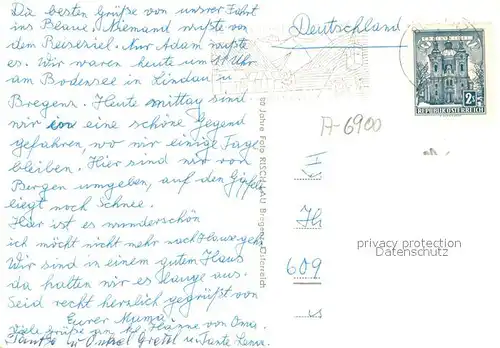 Die besten Grüße von unsrer Fahrt
ins Blaue. Niemand wußte von
dem Reiseziel. Nur Adam wußte
es. Wir waren heute um 11 Uhr
am Bodensee in Lindau u
Bregenz. Heute mittag sind
wir in eine schöne Gegend
gefahren, wo wir einige Tage
bleiben. Hier sind wir von
Bergen umgeben, auf den Gipfeln
liegt noch Schnee.
Hier ist es wunderschön
ich möcht nicht mehr nach Hause gehn
Wir sind in einem guten Haus
da halten wir es lange aus.
Seid recht herzlich gegrüßt von
Eurer Mama
viele grüße an Hanne von Oma.
Tante u Onkel Gretel u Tante Lena.
60 Jahre Foto RISCH-LAU Bregenz Österreich
Deutschland
2S
REPUBLIK ÖSTERREICH
A-6900
609
privacy protection
Datenschutz